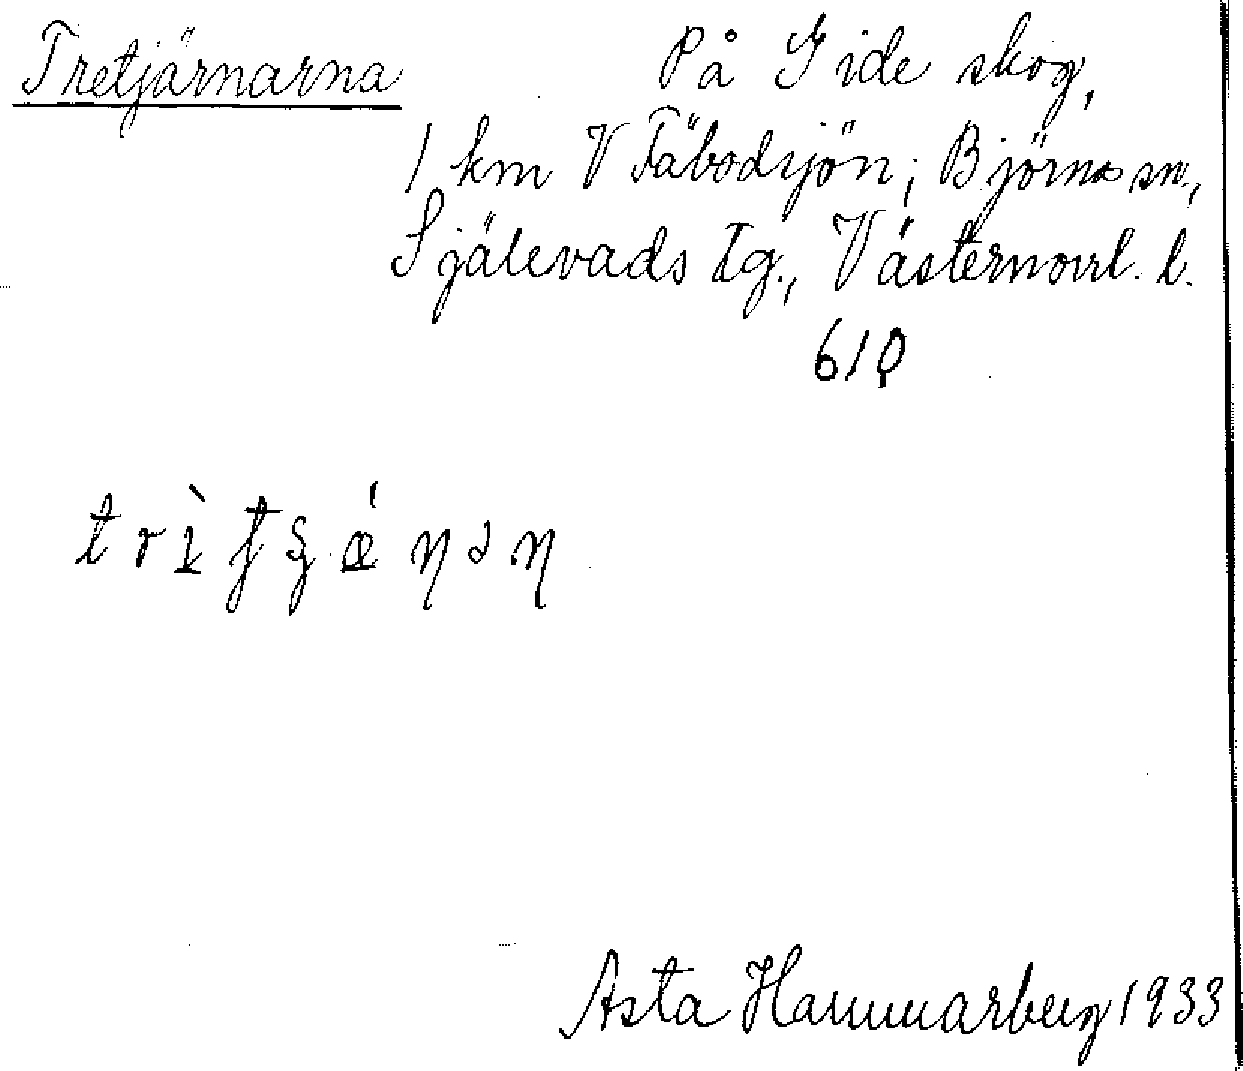 Tretjärnarna På Gide skog,
1 km V Fäbodsjön; Björna sn,
Själevads tg., Västernorrl. l.
610
Asta Hammarberg 1933